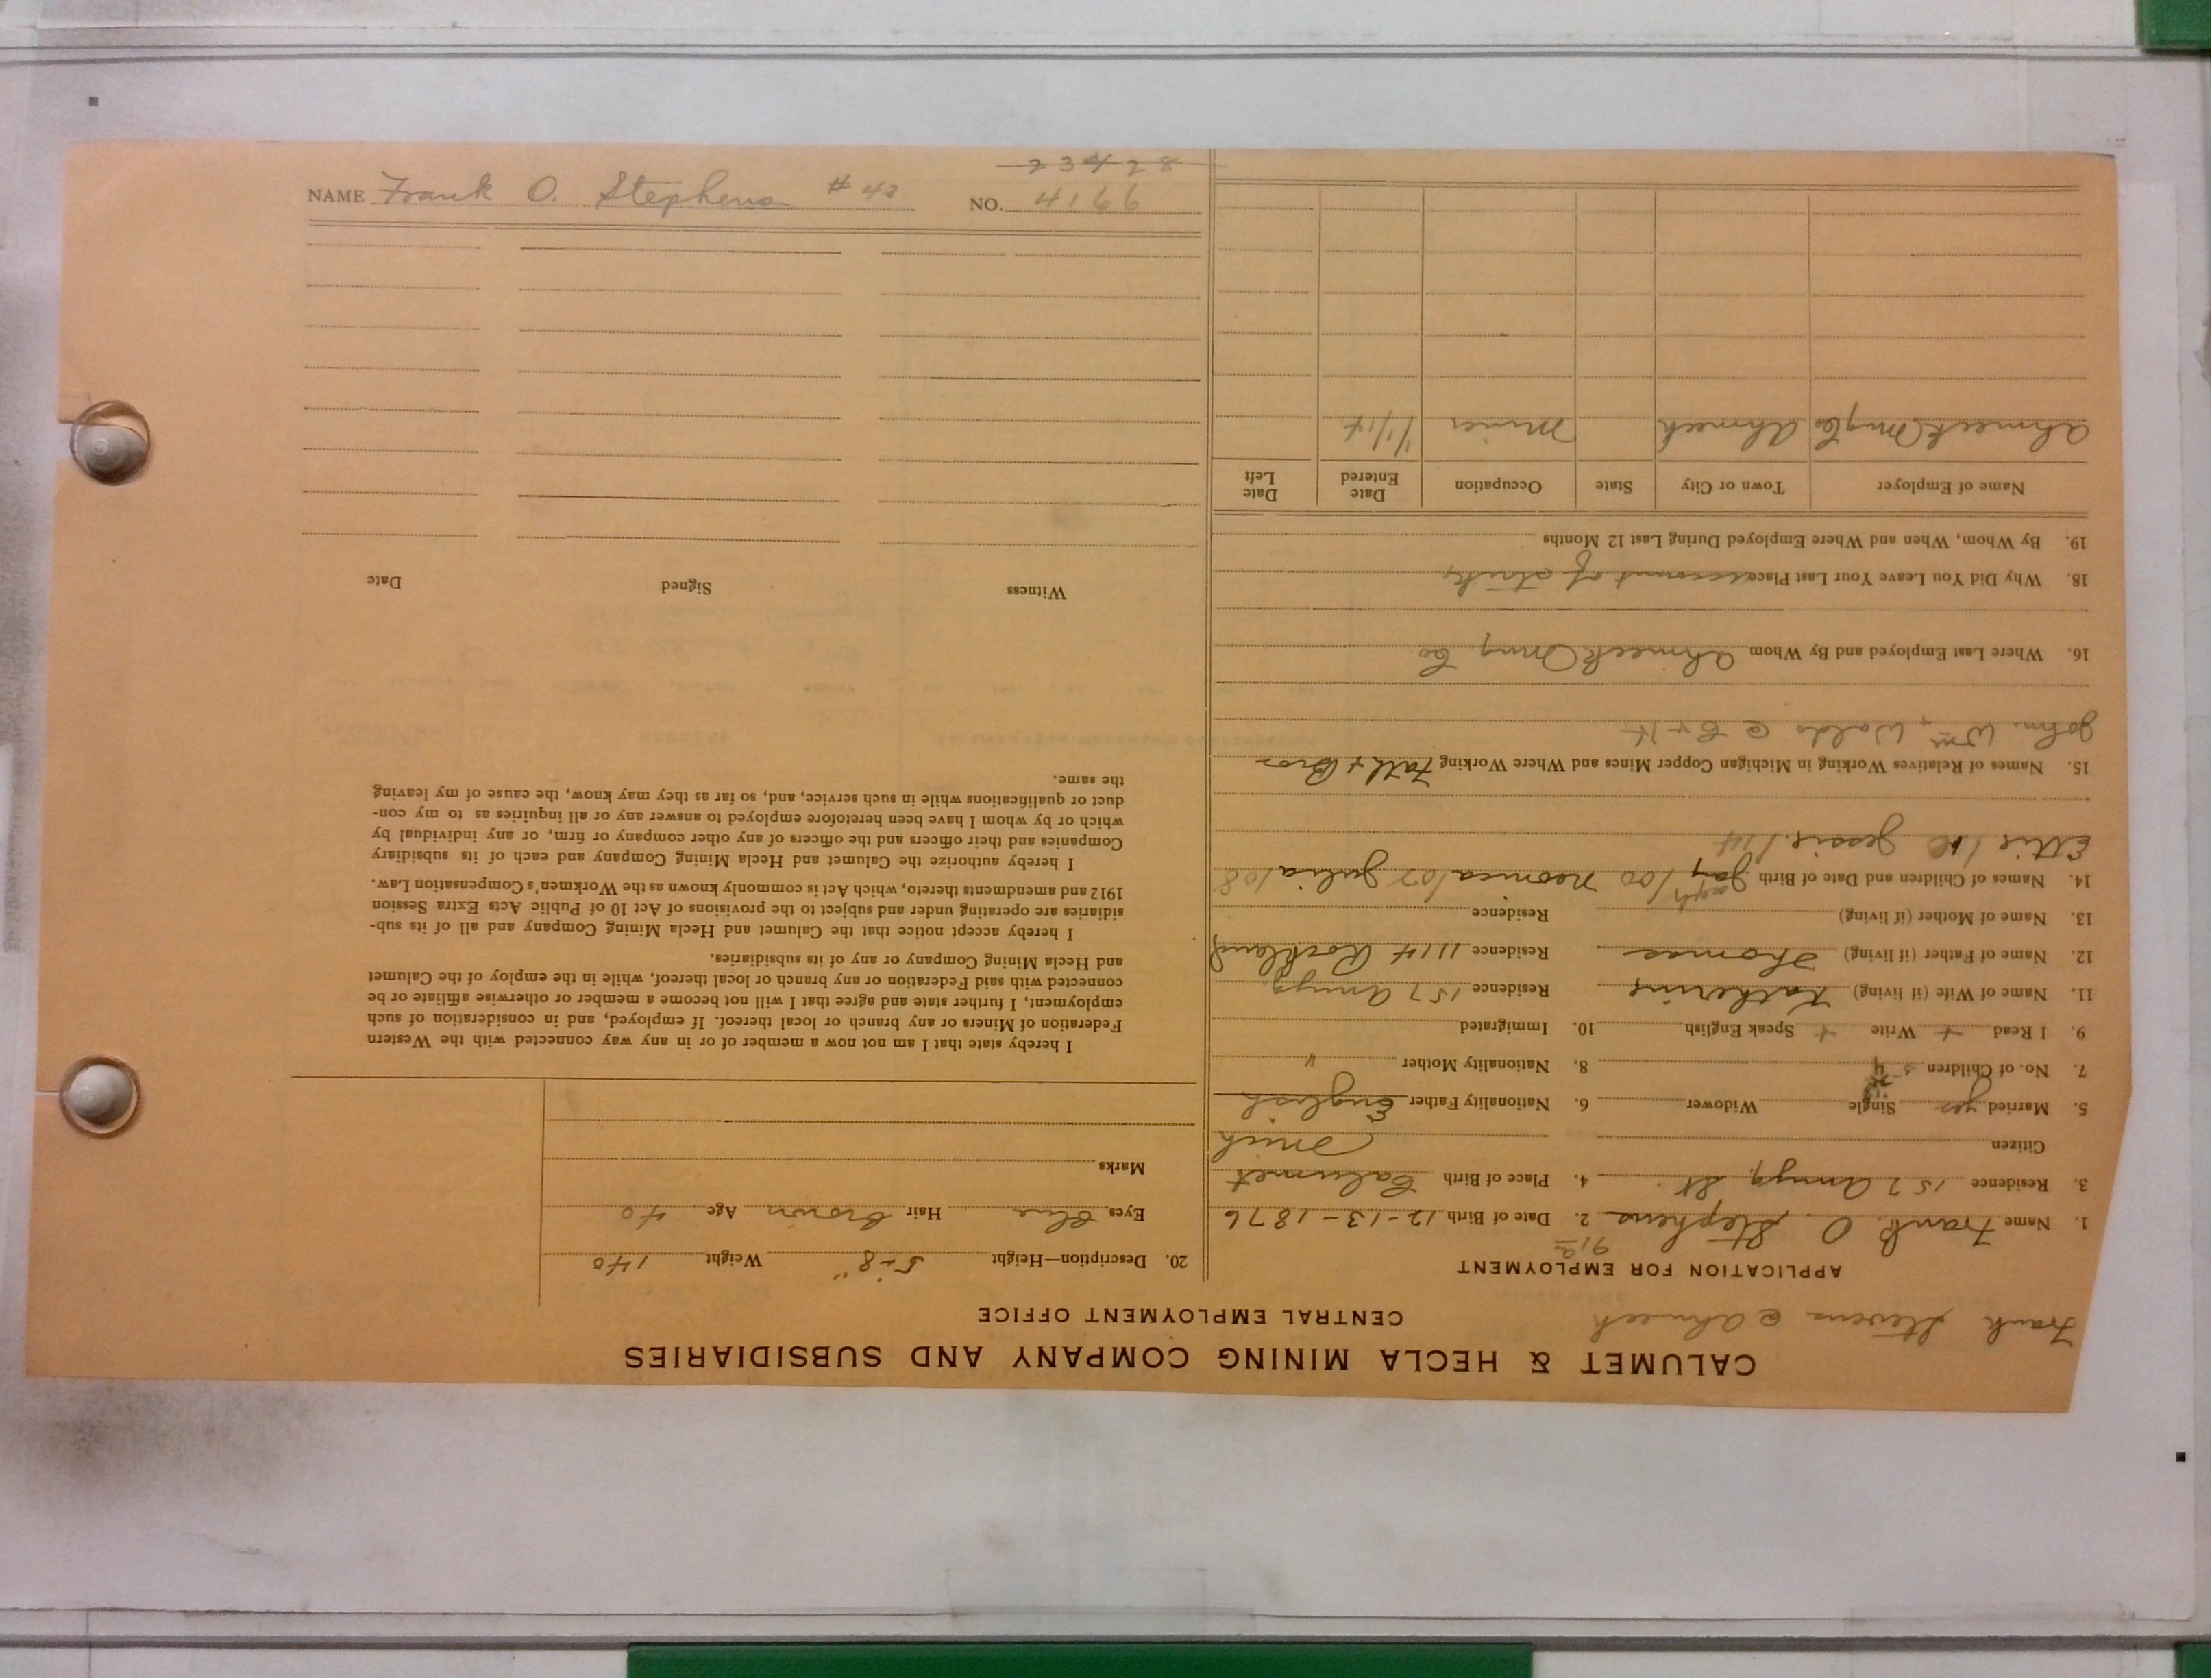 Frank Stevens @ Ahmeek
CALUMET & HECLA MINING COMPANY AND SUBSIDIARIES
CENTRAL EMPLOYMENT OFFICE
APPLICATION FOR EMPLOYMENT
1. Name Frank O. Stephens 2. Date of Birth 12-13-1876
3. Residence 157 St. 4. Place of Birth Calumet
Citizen Mich
5. Married yes Single Widower 6. Nationality Father English
7. No. of Children 8. Nationality Mother "
9. I Read + Write + Speak English 10. Immigrated
11. Name of Wife (if living) Katherine Residence 157
12. Name of Father (if living) Thomas Residence 1114 Rockland
13. Name of Mother (if living) Residence
14. Names of Children and Date of Birth /00 Neomea /07 Julia /08
Jessie /14
15. Names of Relatives Working in Michigan Copper Mines and Where Working Fath + Bros
John, Wm, Waldo @ C + H
16. Where Last Employed and By Whom Ahmeek Mng Co
18. Why Did You Leave Your Last Place account of strike
19. By Whom, When and Where Employed During Last 12 Months
Name of Employer Town or City State Occupation Date Entered Date Left
Ahmeek Mng Co Ahmeek Miner 1/1/14
20. Description—Height 5-8" Weight 140
Eyes Blue Hair Brown Age 40
Marks
I hereby state that I am not now a member of or in any way connected with the Western
Federation of Miners or any branch or local thereof. If employed, and in consideration of such
employment, I further state and agree that I will not become a member or otherwise affiliate or be
connected with said Federation or any branch or local thereof, while in the employ of the Calumet
and Hecla Mining Company or any of its subsidiaries.
I hereby accept notice that the Calumet and Hecla Mining Company and all of its sub-
sidiaries are operating under and subject to the provisions of Act 10 of Public Acts Extra Session
1912 and amendments thereto, which Act is commonly known as the Workmen's Compensation Law.
I hereby authorize the Calumet and Hecla Mining Company and each of its subsidiary
Companies and their officers and the officers of any other company or firm, or any individual by
which or by whom I have been heretofore employed to answer any or all inquiries as to my con-
duct or qualifications while in such service, and, so far as they may know, the cause of my leaving
the same.
Witness Signed Date
23428
NAME Frank O. Stephens # 42 NO. 4166